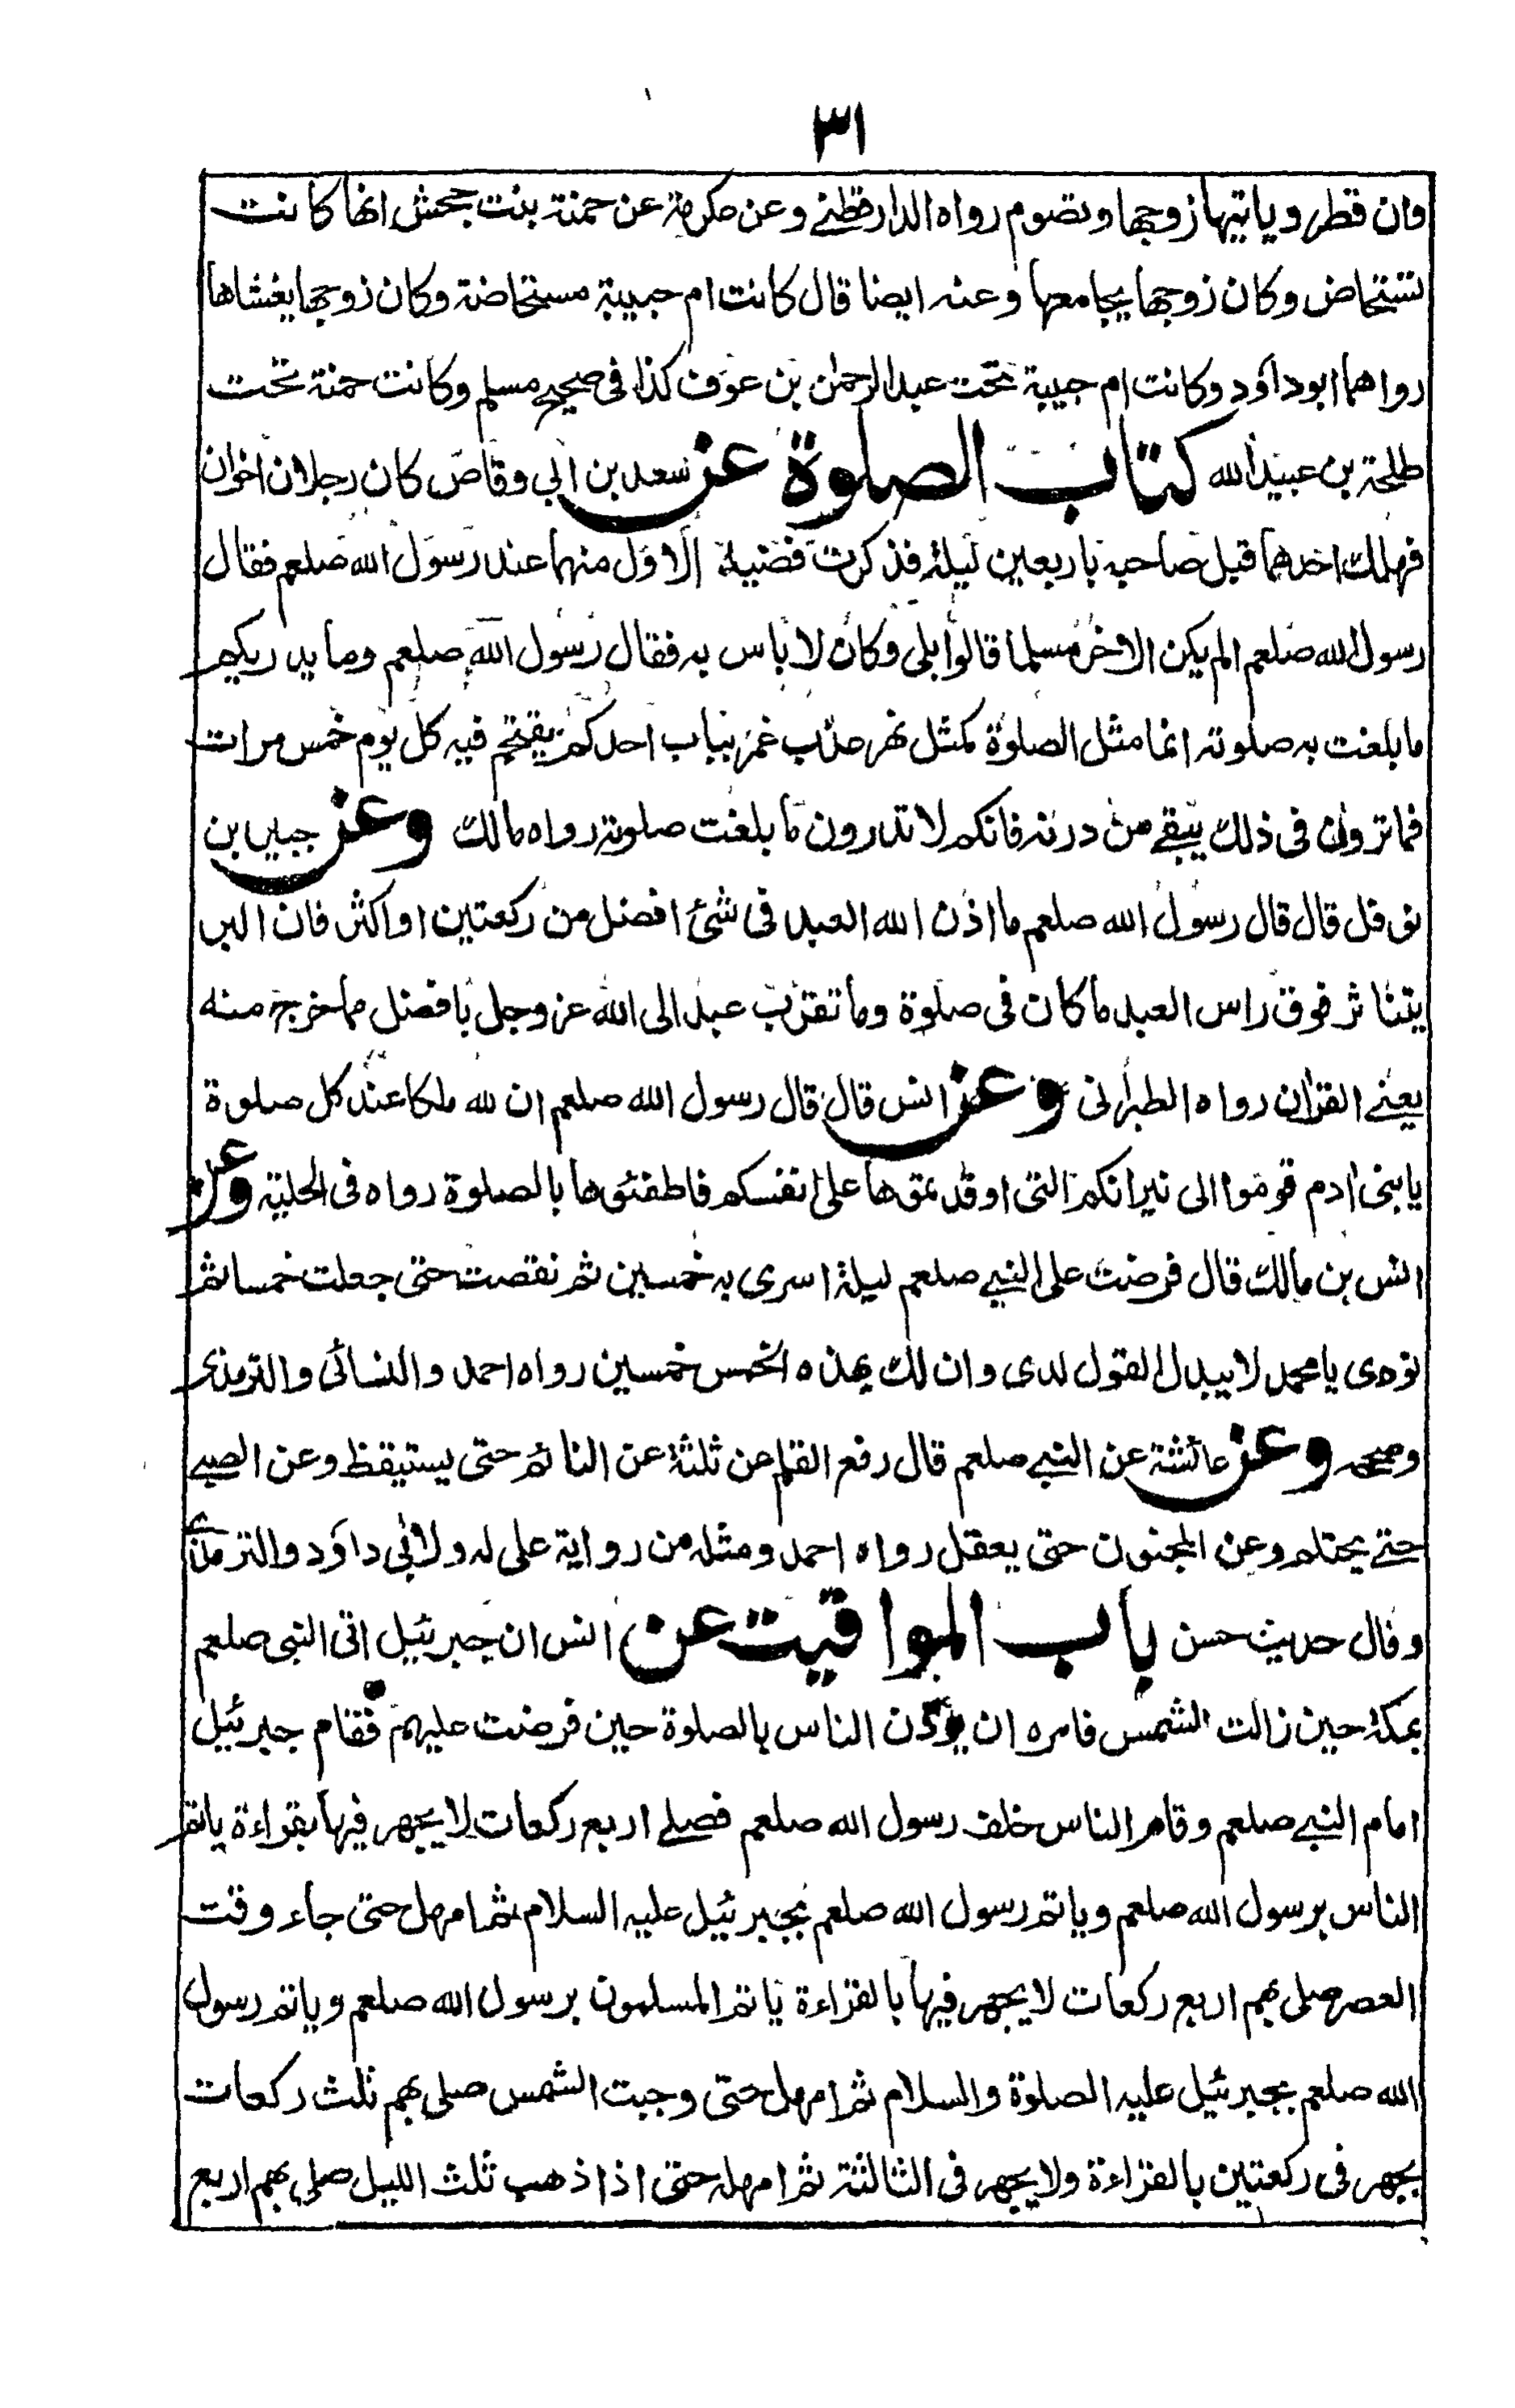 ٣١
وان قطر وياتيها زوجها وتصوم رواه الدارقطني وعن عكرمة عن حمنة بنت جحش انها كانت
تستحاض وكان زوجها يجامعها وعنه ايضا قال كانت ام حبيبة مستحاضة وكان زوجها يغشاها
رواهما ابوداؤد وكانت ام حبيبة تحت عبد الرحمن بن عوف كذا فى صحيح مسلم وكانت حمنة تحت
طلحة بن عبيد الله كتاب الصلوة عن سعد بن ابي وقاص كان رجلان اخوان
فهلك احدهما قبل صاحبه باربعين ليلة فذكرت فضيلة الاول منهما عند رسول الله صلعم فقال
رسول الله صلعم الم يكن الاخر مسلما قالوا بلى وكان لا باس به فقال رسول الله صلعم وما يدريكم
ما بلغت به صلوته انما مثل الصلوة كمثل نهر عذب غمر بباب احدكم يقتحم فيه كل يوم خمس مرات
فما ترون فى ذلك يبقے من درنه فانكم لا تدرون ما بلغت صلوته رواه مالك وعن جبير بن
نوفل قال قال رسول الله صلعم ما اذن الله العبد فى شئ افضل من ركعتين او اكثر فان البر
يتناثر فوق راس العبد ما كان فى صلوة وما تقرب عبد الى الله عز وجل بافضل مما خرج منه
يعنے القران رواه الطبرانى وعن انس قال قال رسول الله صلعم ان لله ملكا عند كل صلوة
يا بنى ادم قوموا الى نيرانكم التى اوقدتموها على انفسكم فاطفئوها بالصلوة رواه فى الحلية وعن
انس بن مالك قال فرضت على النبے صلعم ليلة اسرى به خمسين ثم نقصت حتى جعلت خمسا ثم
نودى يا محمد لا يبدل القول لدى وان لك بهذه الخمس خمسين رواه احمد والنسائى والترمذى
وصححه وعن عائشة عن النبے صلعم قال رفع القلم عن ثلثة عن النائم حتى يستيقظ وعن الصبے
حتے يحتلم وعن المجنون حتى يعقل رواه احمد ومثله من رواية على له ولابي داؤد والترمذي
وقال حديث حسن باب المواقيت عن انس ان جبرئيل اتى النبى صلعم
بمكة حين زالت الشمس فامره ان يؤذن الناس بالصلوة حين فرضت عليهم فقام جبرئيل
امام النبے صلعم وقام الناس خلف رسول الله صلعم فصلے اربع ركعات لا يجهر فيها بقراءة ياتم
الناس برسول الله صلعم وياتم رسول الله صلعم بجبرئيل عليه السلام ثم امهل حتى جاء وقت
العصر صلى بهم اربع ركعات لا يجهر فيها بالقراءة ياتم المسلمون برسول الله صلعم وياتم رسول
الله صلعم بجبرئيل عليه الصلوة والسلام ثم امهل حتى وجبت الشمس صلى بهم ثلث ركعات
يجهر فى ركعتين بالقراءة ولا يجهر فى الثالثة ثم امهله حتى اذا ذهب ثلث الليل صلى بهم اربع